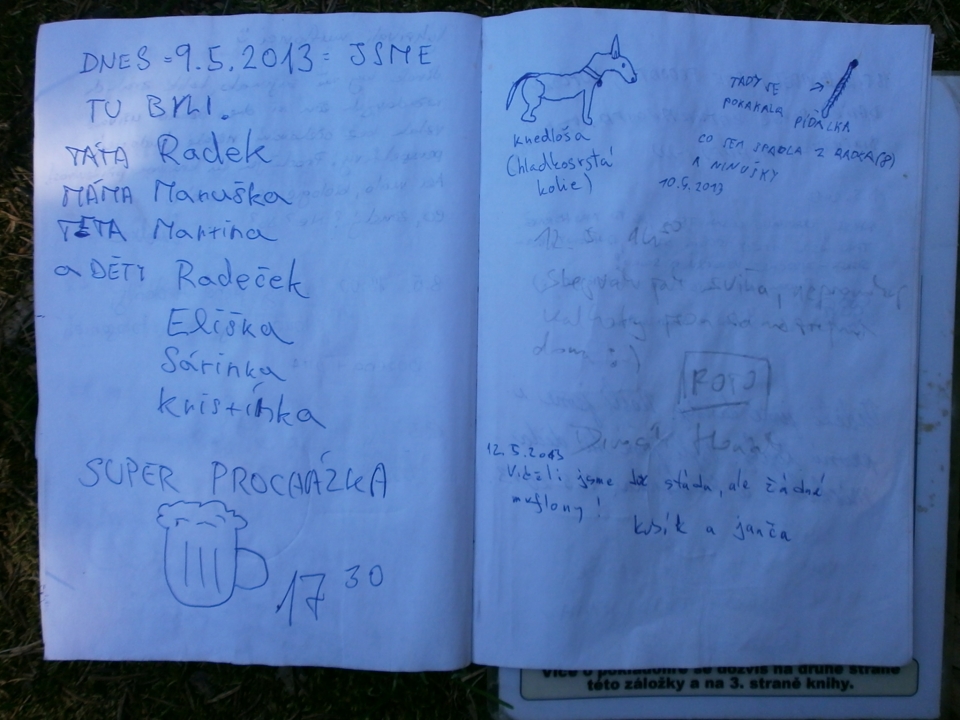 DNES = 9.5.2013 = JSME
TU BYLI.
TÁTA Radek
MÁMA Manuška
TETA Martina
a DĚTY Radeček
Eliška
Sárinka
Kristínka
SUPER PROCHÁZKA
17 30
knedloša
(hladkosrstá
kolie)
TADY SE
POKAKALA
PÍĎALKA
CO SEM SPADLA Z RADCA(8)
A NINUŠKY
10.5.2013
12 5 14 30
domu :)
ROTO
12.5.2013
Viděli jsme stádu, ale žádné
muflony!
kubík a janča
Více o pokladonře se dozvíš na druhé straně
této záložky a na 3. straně knihy.